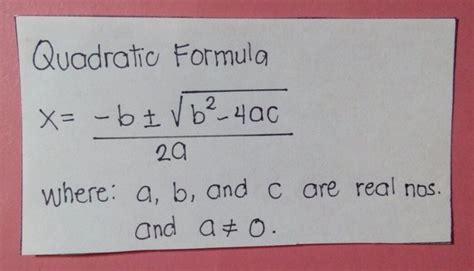 Quadratic Formula
x = -b ± √b² - 4ac
2a
where: a, b, and c are real nos.
and a ≠ 0.